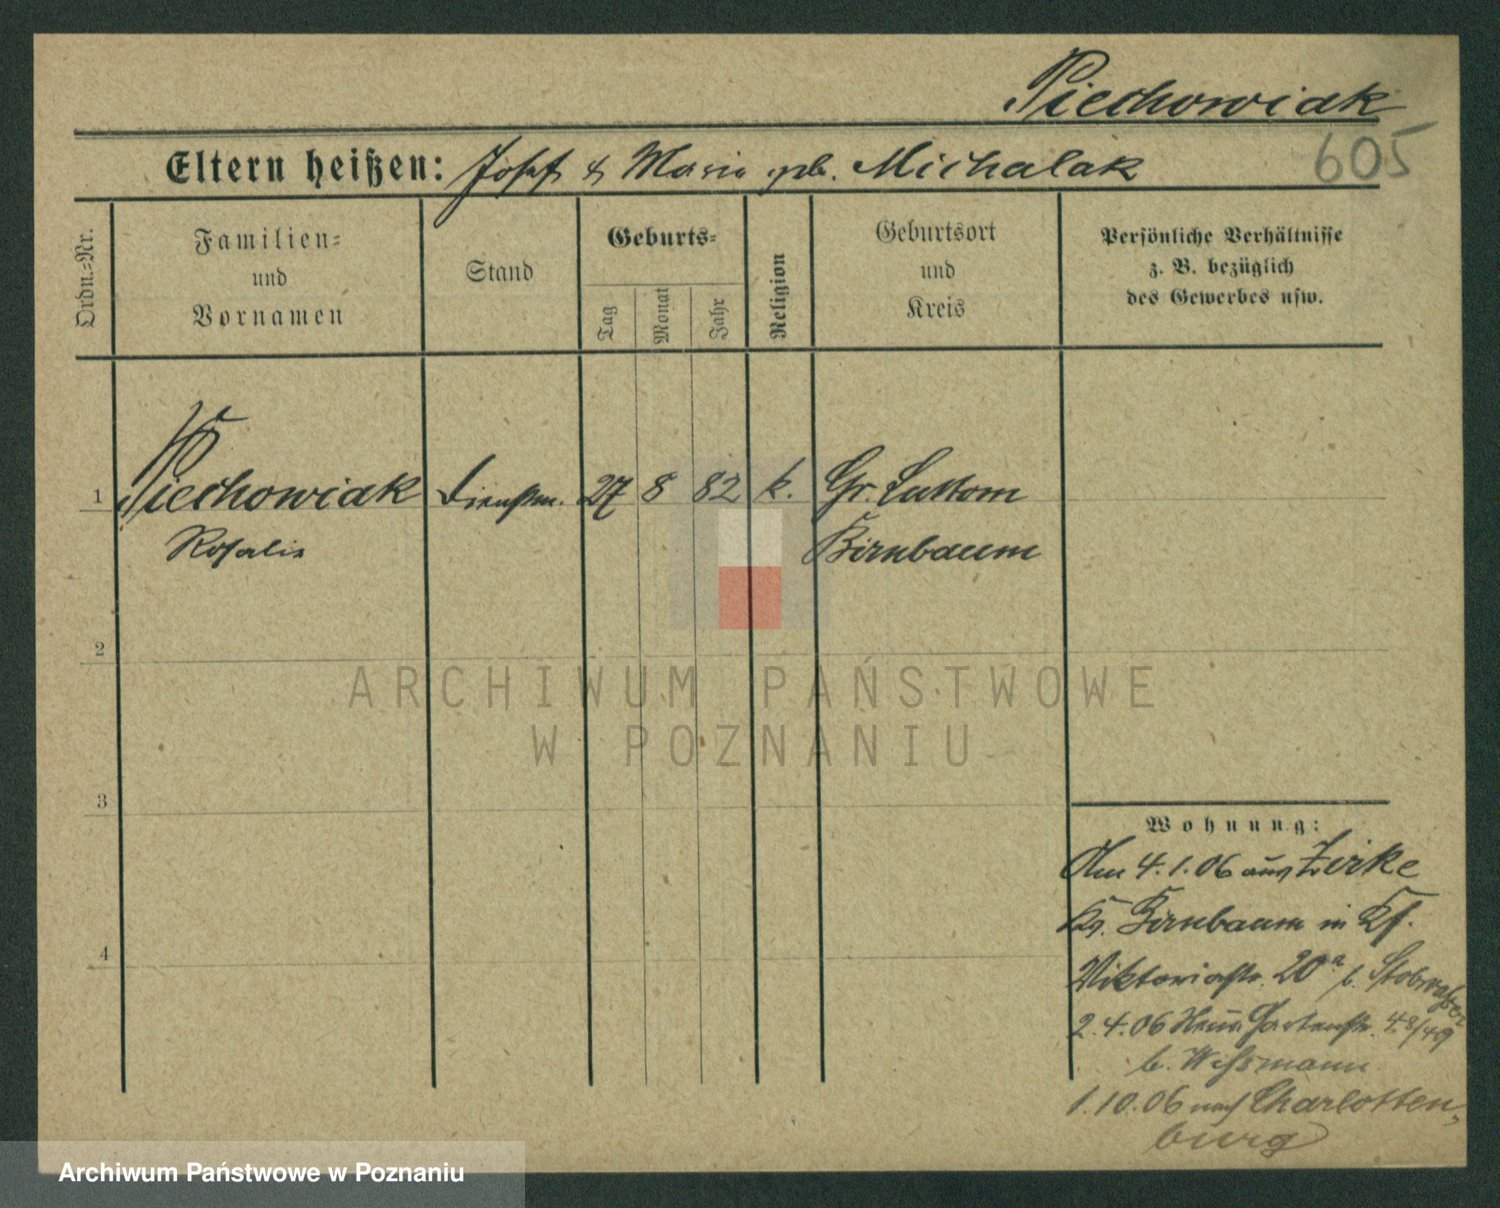 Piechowiak
605
Eltern heißen: Josef & Maria geb. Michalak
Ordn.=Nr.
Familien=
und
Vornamen
Stand
Geburts=
Tag
Monat
Jahr
Religion
Geburtsort
und
Kreis
Persönliche Verhältnisse
z. B. bezüglich
des Gewerbes usw.
1 Piechowiak Dienstm. 27 8 82 k. Gr. Luttom
Rosalie Birnbaum
2
3
4
ARCHIWUM PAŃSTWOWE
W POZNANIU
Wohnung:
Am 4.1.06 aus Zirke
Kr. Birnbaum in
Viktoriastr. 20a b.
2.4.06 Gartenstr. 48/49
b. Wissmann
1.10.06 nach Charlotten-
burg
Archiwum Państwowe w Poznaniu